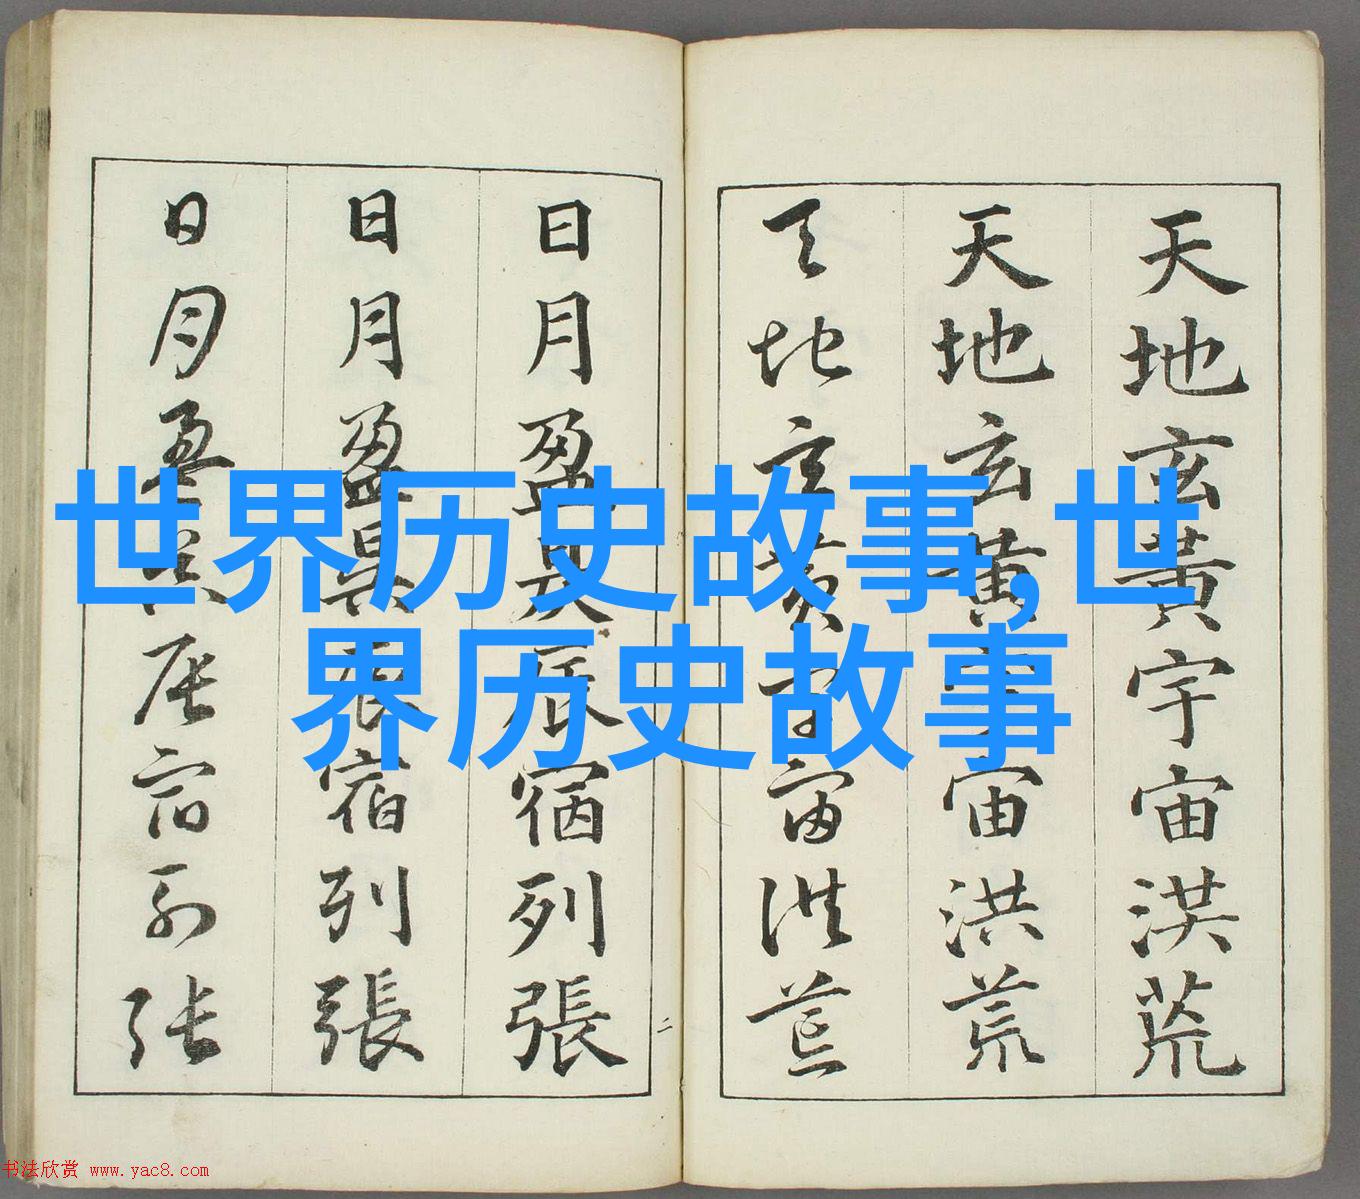 世界历史故事,世
界历史故事
天地玄黃宇宙洪荒
天地玄黃宇宙洪荒
天地玄黃宇宙洪荒
日月盈昃辰宿列張
日月盈昃辰宿列張
日月盈昃辰宿列張
二
书法欣赏 www.yac8.com